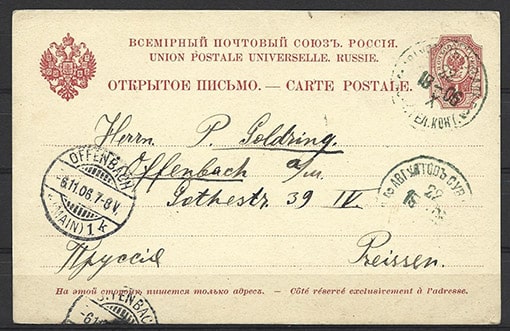 ВСЕМІРНЫЙ ПОЧТОВЫЙ СОЮЗЪ. РОССІЯ.
UNION POSTALE UNIVERSELLE. RUSSIE.
ОТКРЫТОЕ ПИСЬМО. — CARTE POSTALE.
18-06
X
ТЕЛ. КОНТ.
Herrn P. Goldring.
Offenbach a/m.
Gothestr 39 IV.
OFFENBACH
6.11.06.7-8V.
(MAIN) 1 k
АВГУСТОВЪ СУВ
Пруссія Preissen.
На этой сторонѣ пишется только адресъ. — Côté réservé exclusivement à l'adresse.